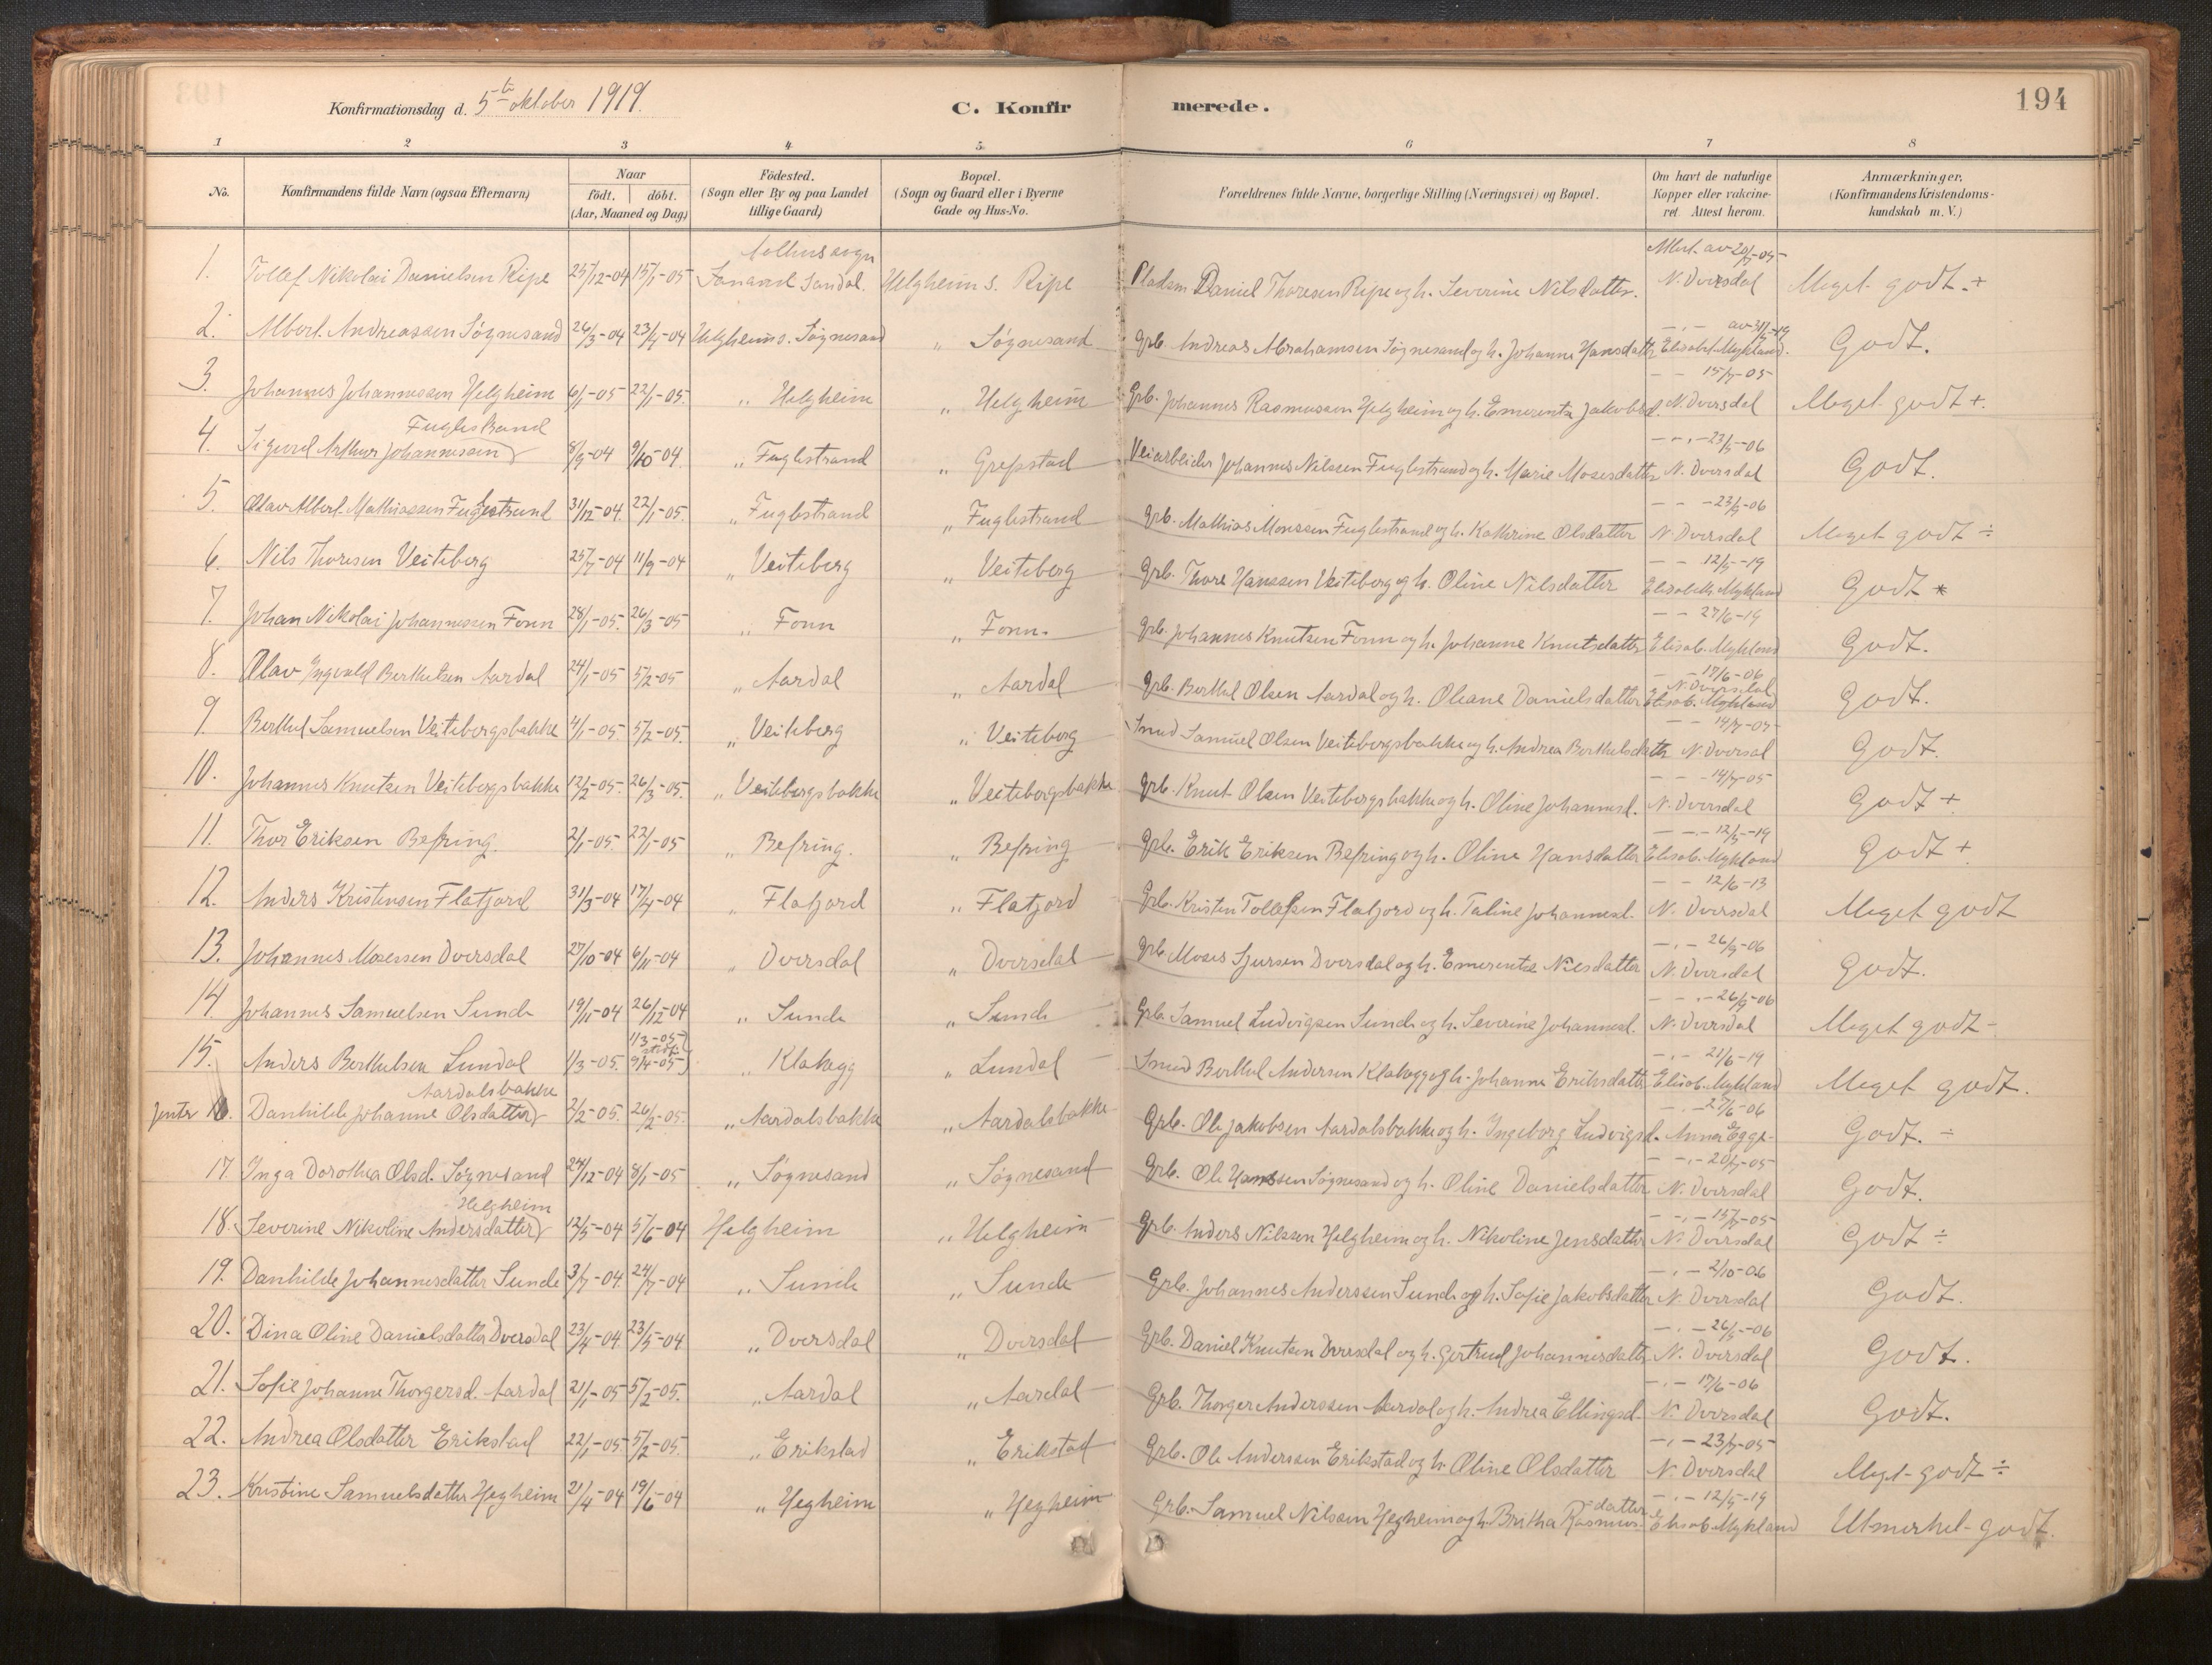 Konfirmationsdag d. 5te oktober 1919.
C. Konfirmerede.
194
1 2 3 4 5 6 7 8
No.
Konfirmandens fulde Navn (ogsaa Efternavn)
Naar
födt. döbt.
(Aar, Maaned og Dag)
Födested.
(Sogn eller By og paa Landet
tillige Gaard)
Bopæl.
(Sogn og Gaard eller i Byerne
Gade og Hus-No.
Forældrenes fulde Navne, borgerlige Stilling (Næringsvei) og Bopæl.
Om havt de naturlige
Kopper eller vakcine-
ret. Attest herom.
Anmærkninger.
(Konfirmandens Kristendoms-
kundskab m. V.)
Aolhus sogn Attest av 20/7-05
1. Tollef Nikolai Danielsen Ripe 25/12-04 15/1-05 Sandal. Helgheim s. Ripe Pladsm. Daniel Thoresen Ripe og h. Severine Nilsdatter. N. Dversdal Meget godt.+
- " - av 31/5-19
2. Albert Andreassen Søgnesand 26/3-04 23/4-04 Helgheim s. Søgnesand " Søgnesand Grb. Andreas Abrahamsen Søgnesand og h. Johanne Hansdatter Elisabet Mykland. Godt.
- - 15/7-05
3. Johannes Johannessen Helgheim 6/1-05 22/1-05. " Helgheim " Helgheim Grb. Johannes Rasmussen Helgheim og h. Emerentze Jakobsd. N. Dversdal Meget godt +.
Fuglestrand - " - 23/5-06
4. Sigurd Arthur Johannessen 8/9-04 9/10-04. " Fuglestrand " Grepstad Veiarbeider Johannes Nilssen Fuglestrand og h. Marie Mosesdatter N. Dversdal Godt.
- - 23/9-06
5. Olav Albert Mathiassen Fuglestrand 31/12-04. 22/1-05. " Fuglestrand " Fuglestrand Grb. Mathias Monssen Fuglestrand og h. Kathrine Olsdatter N. Dversdal Meget godt ÷
- - 12/5-19
6. Nils Thoresen Veiteberg 25/7-04 11/9-04 " Veiteberg " Veiteberg Grb. Thore Hanssen Veiteberg og h. Oline Nilsdatter Elisabeth Mykland Godt +
- - 27/6-19
7. Johan Nikolai Johannessen Fonn 28/1-05. 26/3-05 " Fonn " Fonn. Grb. Johannes Knutsen Fonn og h. Johanne Knutsdatter Elisab. Mykland Godt.
- - 17/6-06
N. Dversdal
8. Olav Ingvald Berthelsen Aardal 24/1-05 5/2-05 " Aardal " Aardal Grb. Berthel Olsen Aardal og h. Oleane Danielsdatter Elisab. Mykland Godt.
- - 14/7-05
9. Berthel Samuelsen Veitebergsbakke 4/1-05 5/2-05. " Veiteberg " Veiteberg Smed Samuel Olsen Veitebergsbakke og h. Andrea Berthelsdatter N. Dversdal Godt.
- - 14/7-05
10. Johannes Knutsen Veitebergsbakke 12/2-05. 26/3-05. " Veitebergsbakke " Veitebergsbakke Grb. Knut Olsen Veitebergsbakke og h. Oline Johannesd. N. Dversdal Godt +
- - - 12/5-19
11. Thor Eriksen Befring. 2/1-05. 22/1-05 " Befring. " Befring Grb. Erik Eriksen Befring og h. Oline Hansdatter Elisab. Mykland Godt +
- - 12/6-13
12. Anders Kristensen Flatjord 31/3-04 17/4-04 " Flatjord " Flatjord Grb. Kristen Tollefsen Flatjord og h. Taline Johannesd. N. Dversdal Meget godt
- " - 26/9-06
13. Johannes Mosessen Dversdal 27/10-04 6/11-04 " Dversdal " Dversdal Grb. Moses Sjursen Dversdal og h. Emerentze Nilsdatter N. Dversdal Godt.
- - - 26/9-06
14. Johannes Samuelsen Sunde 19/11-04 26/12-04 " Sunde " Sunde Grb. Samuel Ludvigsen Sunde og h. Severine Johannesd. N. Dversdal Meget godt -
1/3-05
- " - 21/6-19
15. Anders Berthelsen Lundal 1/3-05. 9/4-05 " Klakegg " Lundal Smed Berthel Andersen Klakegg og h. Johanne Eriksdatter Elisab. Mykland Meget godt.
Aardalsbakke - - 27/6-06
Jenter 16. Danhilde Johanne Olsdatter 2/2-05. 26/2-05. " Aardalsbakke " Aardalsbakke Grb. Ole Jakobsen Aardalsbakke og h. Ingeborg Ludvigsd. Anna Egge. Godt. ÷
- - - 20/7-05
17. Inga Dorothea Olsd. Søgnesand 24/12-04 8/1-05 " Søgnesand " Søgnesand Grb. Ole Hanssen Søgnesand og h. Oline Danielsdatter N. Dversdal Godt.
Helgheim - " - 15/7-05
18. Severine Nikoline Andersdatter 12/5-04 5/6-04 Helgheim " Helgheim Grb. Anders Nilssen Helgheim og h. Nikoline Jensdatter N. Dversdal Godt ÷
- " - 2/10-06
19. Danhilde Johannesdatter Sunde 3/7-04. 24/7-04 " Sunde " Sunde Grb. Johannes Anderssen Sunde og h. Sofie Jakobsdatter N. Dversdal Godt.
- " - 26/5-06
20. Dina Oline Danielsdatter Dversdal 23/4-04. 23/5-04 " Dversdal " Dversdal Grb. Daniel Knutsen Dversdal og h. Gertrud Johannesdatter N. Dversdal Godt.
- " - 17/6-06
21. Sofie Johanne Thorgersd. Aardal 21/1-05 5/2-05. " Aardal " Aardal Grb. Thorger Anderssen Aardal og h. Andrea Ellingsd. N. Dversdal Godt.
- " - 23/7-05
22. Andrea Olsdatter Erikstad 22/1-05 5/2-05. " Erikstad " Erikstad Grb. Ole Anderssen Erikstad og h. Oline Olsdatter N. Dversdal Meget godt ÷
datter - " - 12/5-19
23. Kristine Samuelsdatter Hegheim 21/4-04 19/6-04 " Hegheim " Hegheim Grb. Samuel Nilssen Hegheim og h. Britha Rasmus- Elisab. Mykland Utmerket godt.